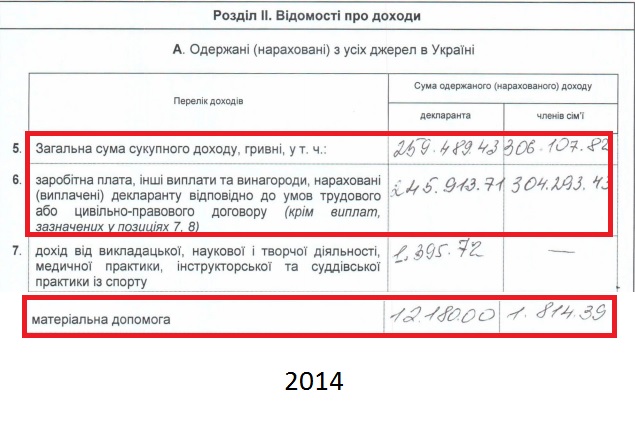 Розділ II. Відомості про доходи
А. Одержані (нараховані) з усіх джерел в Україні
Перелік доходів
Сума одержаного (нарахованого) доходу
декларанта
членів сім'ї
5. Загальна сума сукупного доходу, гривні, у т. ч.: 259.489.43 306.107.82
6. заробітна плата, інші виплати та винагороди, нараховані 245.913.71 304.293.43
(виплачені) декларанту відповідно до умов трудового
або цивільно-правового договору (крім виплат,
зазначених у позиціях 7, 8)
7. дохід від викладацької, наукової і творчої діяльності, 1.395.72 —
медичної практики, інструкторської та суддівської
практики із спорту
матеріальна допомога 12.180.00 1.814.39
2014